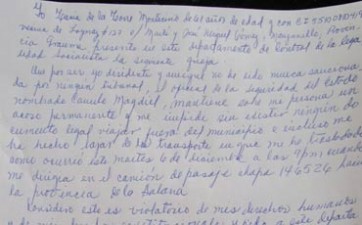 Yo, Juana de la Torre Montesino de 61 años de edad y con CI
vecina de Loynaz # 132 e/ Martí y José Miguel Gómez, Manzanillo, Provin
cia Granma presento en este departamento de Control de la Lega
lidad Socialista la siguiente queja
Que por ser yo disidente y aunque no he sido nunca sancionada
por ningún tribunal, el oficial de la seguridad del Estado
nombrado Camilo Magdiel, mantiene sobre mi persona un
acoso permanente y me impide sin existir ningún do
cumento legal viajar fuera del municipio e incluso me
ha hecho bajar de los transporte en que me he trasladado
como ocurrió este martes 6 de diciembre a las 9pm cuando
me dirigía en el camión de pasaje chapa 146526 hacia
la provincia de la Habana
Considero esto es violatorio de mis derechos humanos